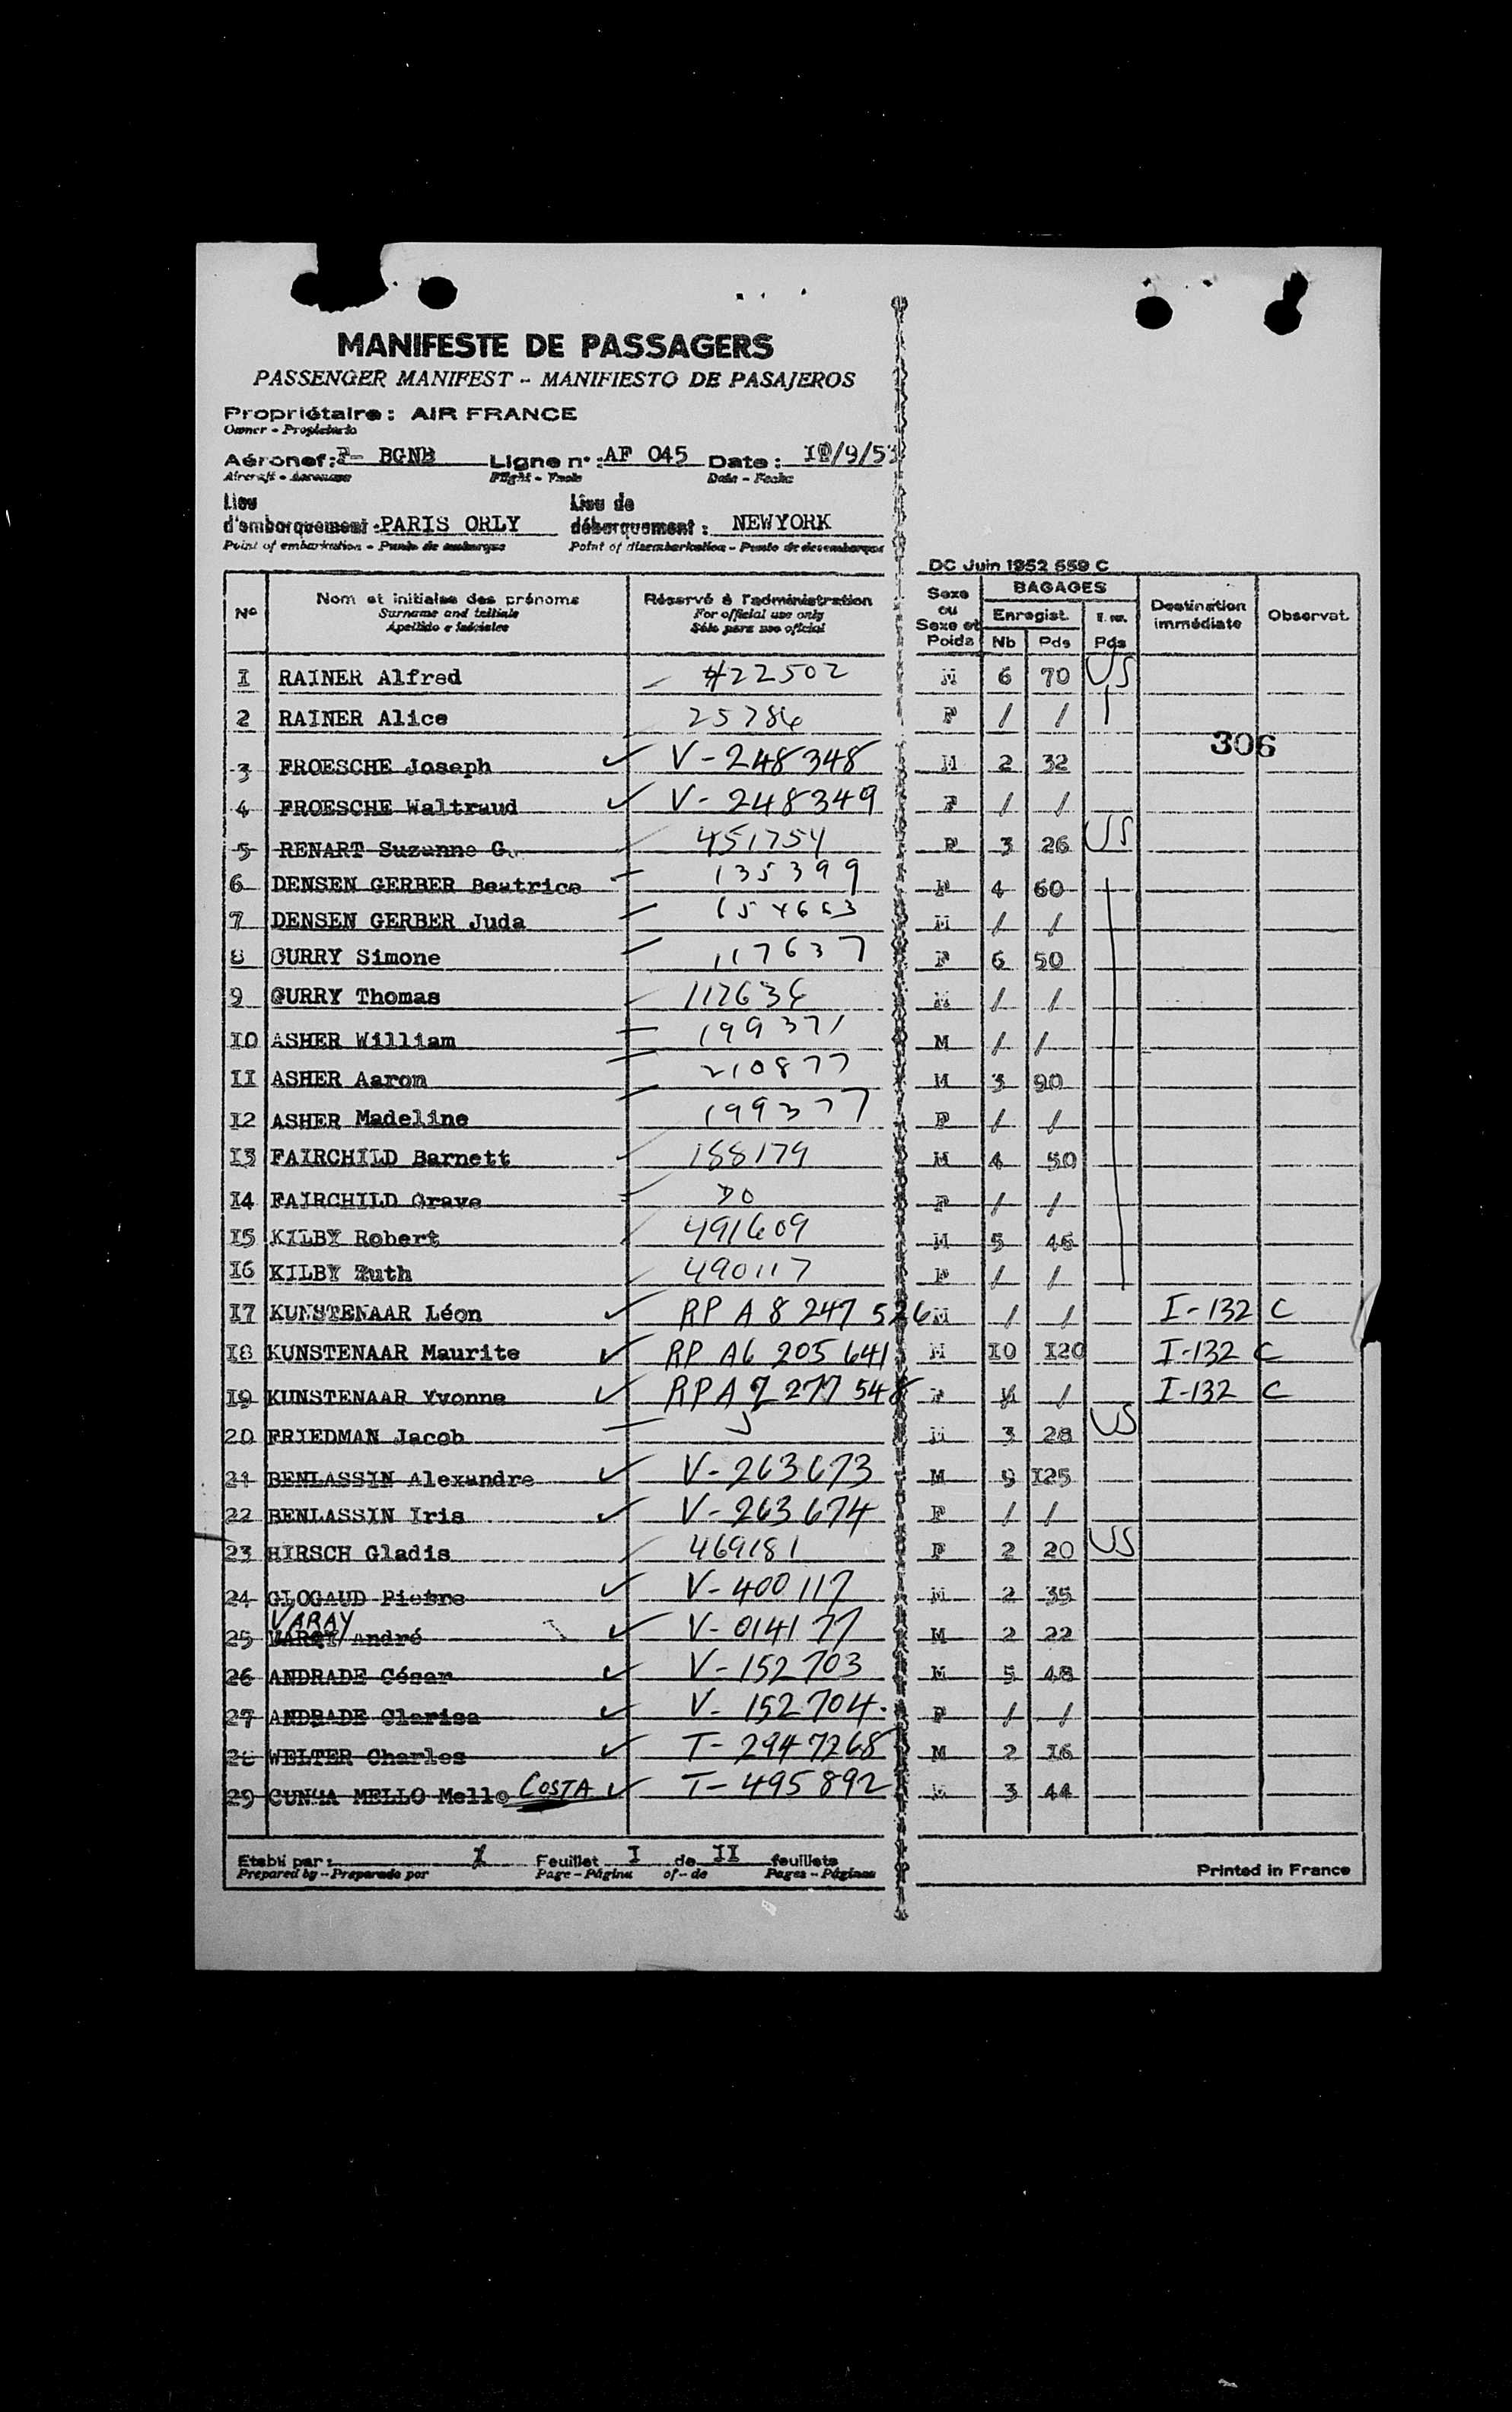 MANIFESTE DE PASSAGERS
PASSENGER MANIFEST - MANIFIESTO DE PASAJEROS
Propriétaire: AIR FRANCE
Owner - Propietario
Aéronef: F- BGNB Ligne n°: AF 045 Date: /9/53
Aircraft - Aeronave Flight - Vuelo Date - Fecha
Lieu d'embarquement: PARIS ORLY Lieu de débarquement: NEWYORK
Point of embarkation - Punto de embarque Point of disembarkation - Punto de desembarque
DC Juin 1952 559 C
N° Nom et initiales des prénoms Réservé à l'administration Sexe ou Sexe et Poids BAGAGES Destination immédiate Observat.
Surname and initials For official use only Enregist.
Apellido e iniciales Sólo para uso oficial Nb Pds Pds
I RAINER Alfred #22502 M 6 70 US
2 RAINER Alice 25786 F / /
306
3 FROESCHE Joseph ✓ V-248348 M 2 32
4 FROESCHE Waltraud ✓ V-248349 F / /
5 RENART Suzanne G. 451754 F 3 26 US
6 DENSEN GERBER Beatrice 135399 F 4 60
7 DENSEN GERBER Juda M / /
8 GURRY Simone 117637 F 6 50
9 GURRY Thomas 117636 M / /
IO ASHER William 199371 M / /
II ASHER Aaron 210877 M 3 90
I2 ASHER Madeline 199377 F / /
I3 FAIRCHILD Barnett 188179 M 4 50
I4 FAIRCHILD Grave DO F / /
I5 KILBY Robert 491609 M 5 46
I6 KILBY Ruth 490117 F / /
I7 KUNSTENAAR Léon ✓ RP A8 247 526 M / / I-132 C
I8 KUNSTENAAR Maurite ✓ RP A6 205 641 M IO I20 I-132 C
I9 KUNSTENAAR Yvonne ✓ RP A7 277 548 F / / I-132 C
20 FRIEDMAN Jacob M 3 28 US
21 BENLASSIN Alexandre ✓ V-263673 M 9 I25
22 BENLASSIN Iris ✓ V-263674 F / /
23 HIRSCH Gladis 469181 F 2 20 US
24 GLOGAUD Pietre ✓ V-400117 M 2 35
VARAY
25 André ✓ V-014177 M 2 22
26 ANDRADE César ✓ V-152703 M 5 48
27 ANDRADE Clarisa ✓ V-152704. F / /
28 WELTER Charles ✓ T-2947268 M 2 I6
29 CUNHA MELLO Mello COSTA ✓ T-495892 M 3 44
Etabli par: Feuillet I de II feuillets
Prepared by - Preparado por Page - Página of - de Pages - Páginas
Printed in France